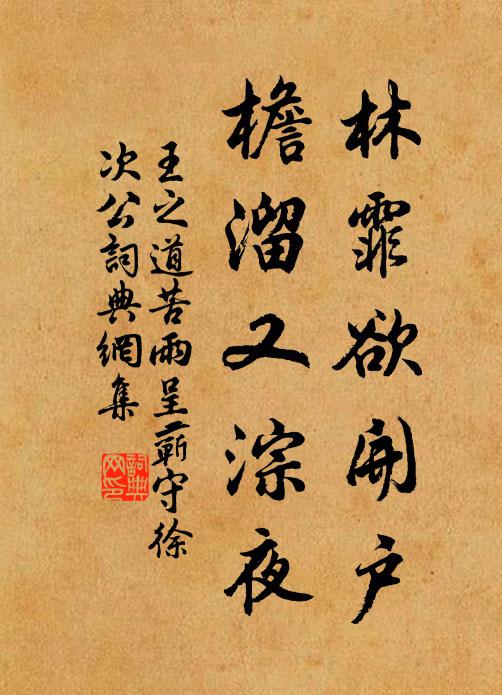 林霏欲開戶
檐溜又淙夜
王之道苦雨呈蘄守徐
次公詞典網集
詞典網印